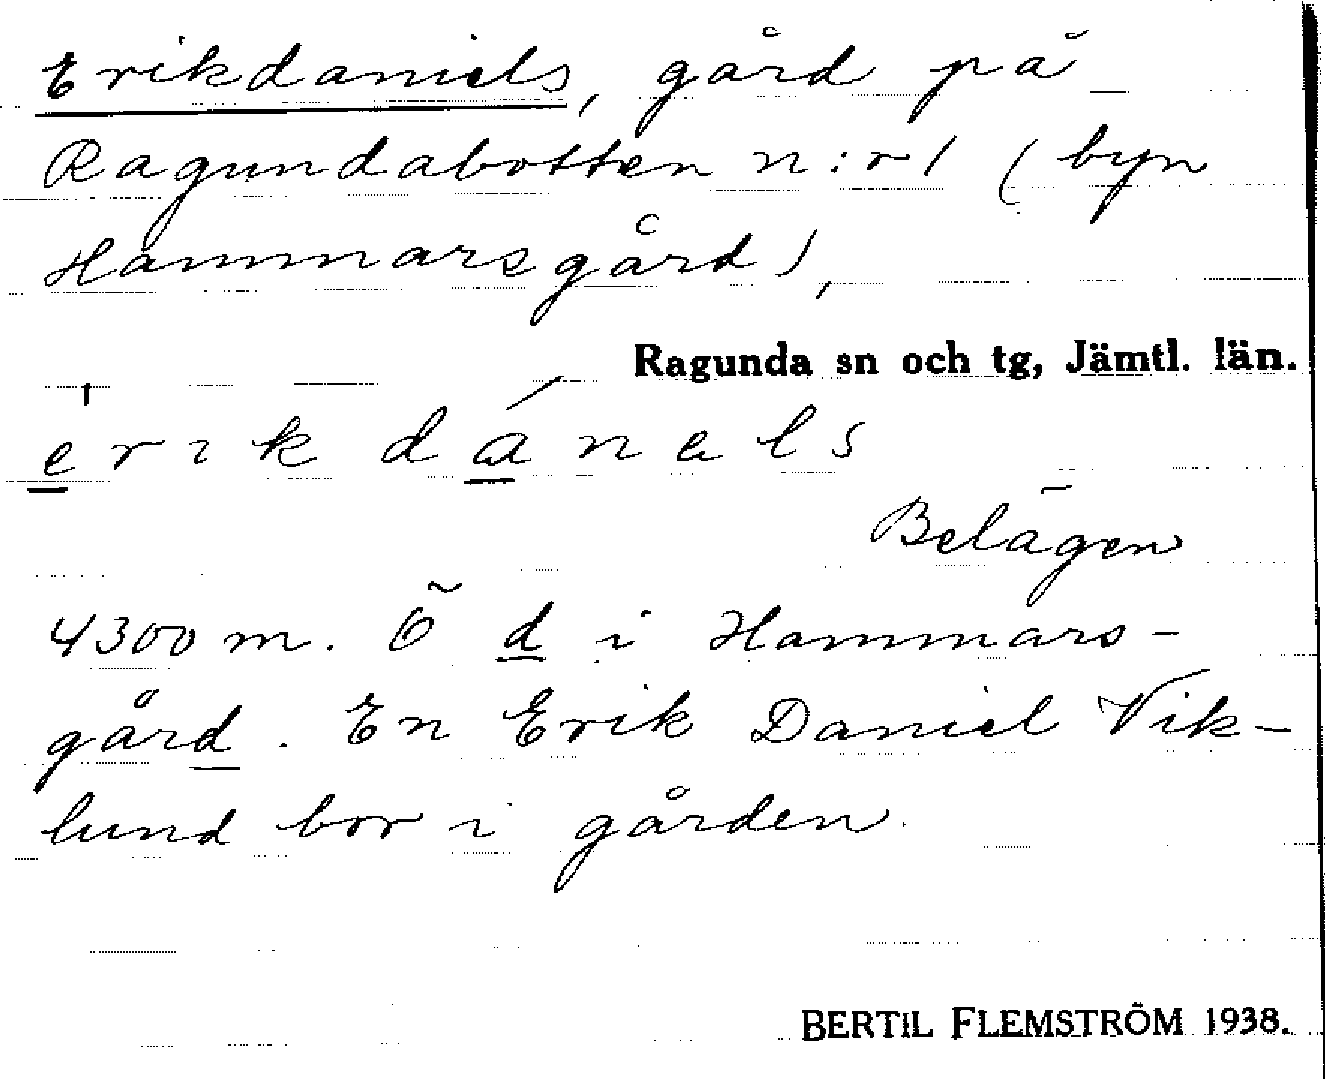 Erikdaniels, gård på
Ragundabotten n:r 1 (byn
Hammarsgård),
Ragunda sn och tg, Jämtl. län.
èrikdánals
Belägen
4300 m. Ö d i Hammars-
gård. En Erik Daniel Vik-
lund bor i gården.
BERTIL FLEMSTRÖM 1938.